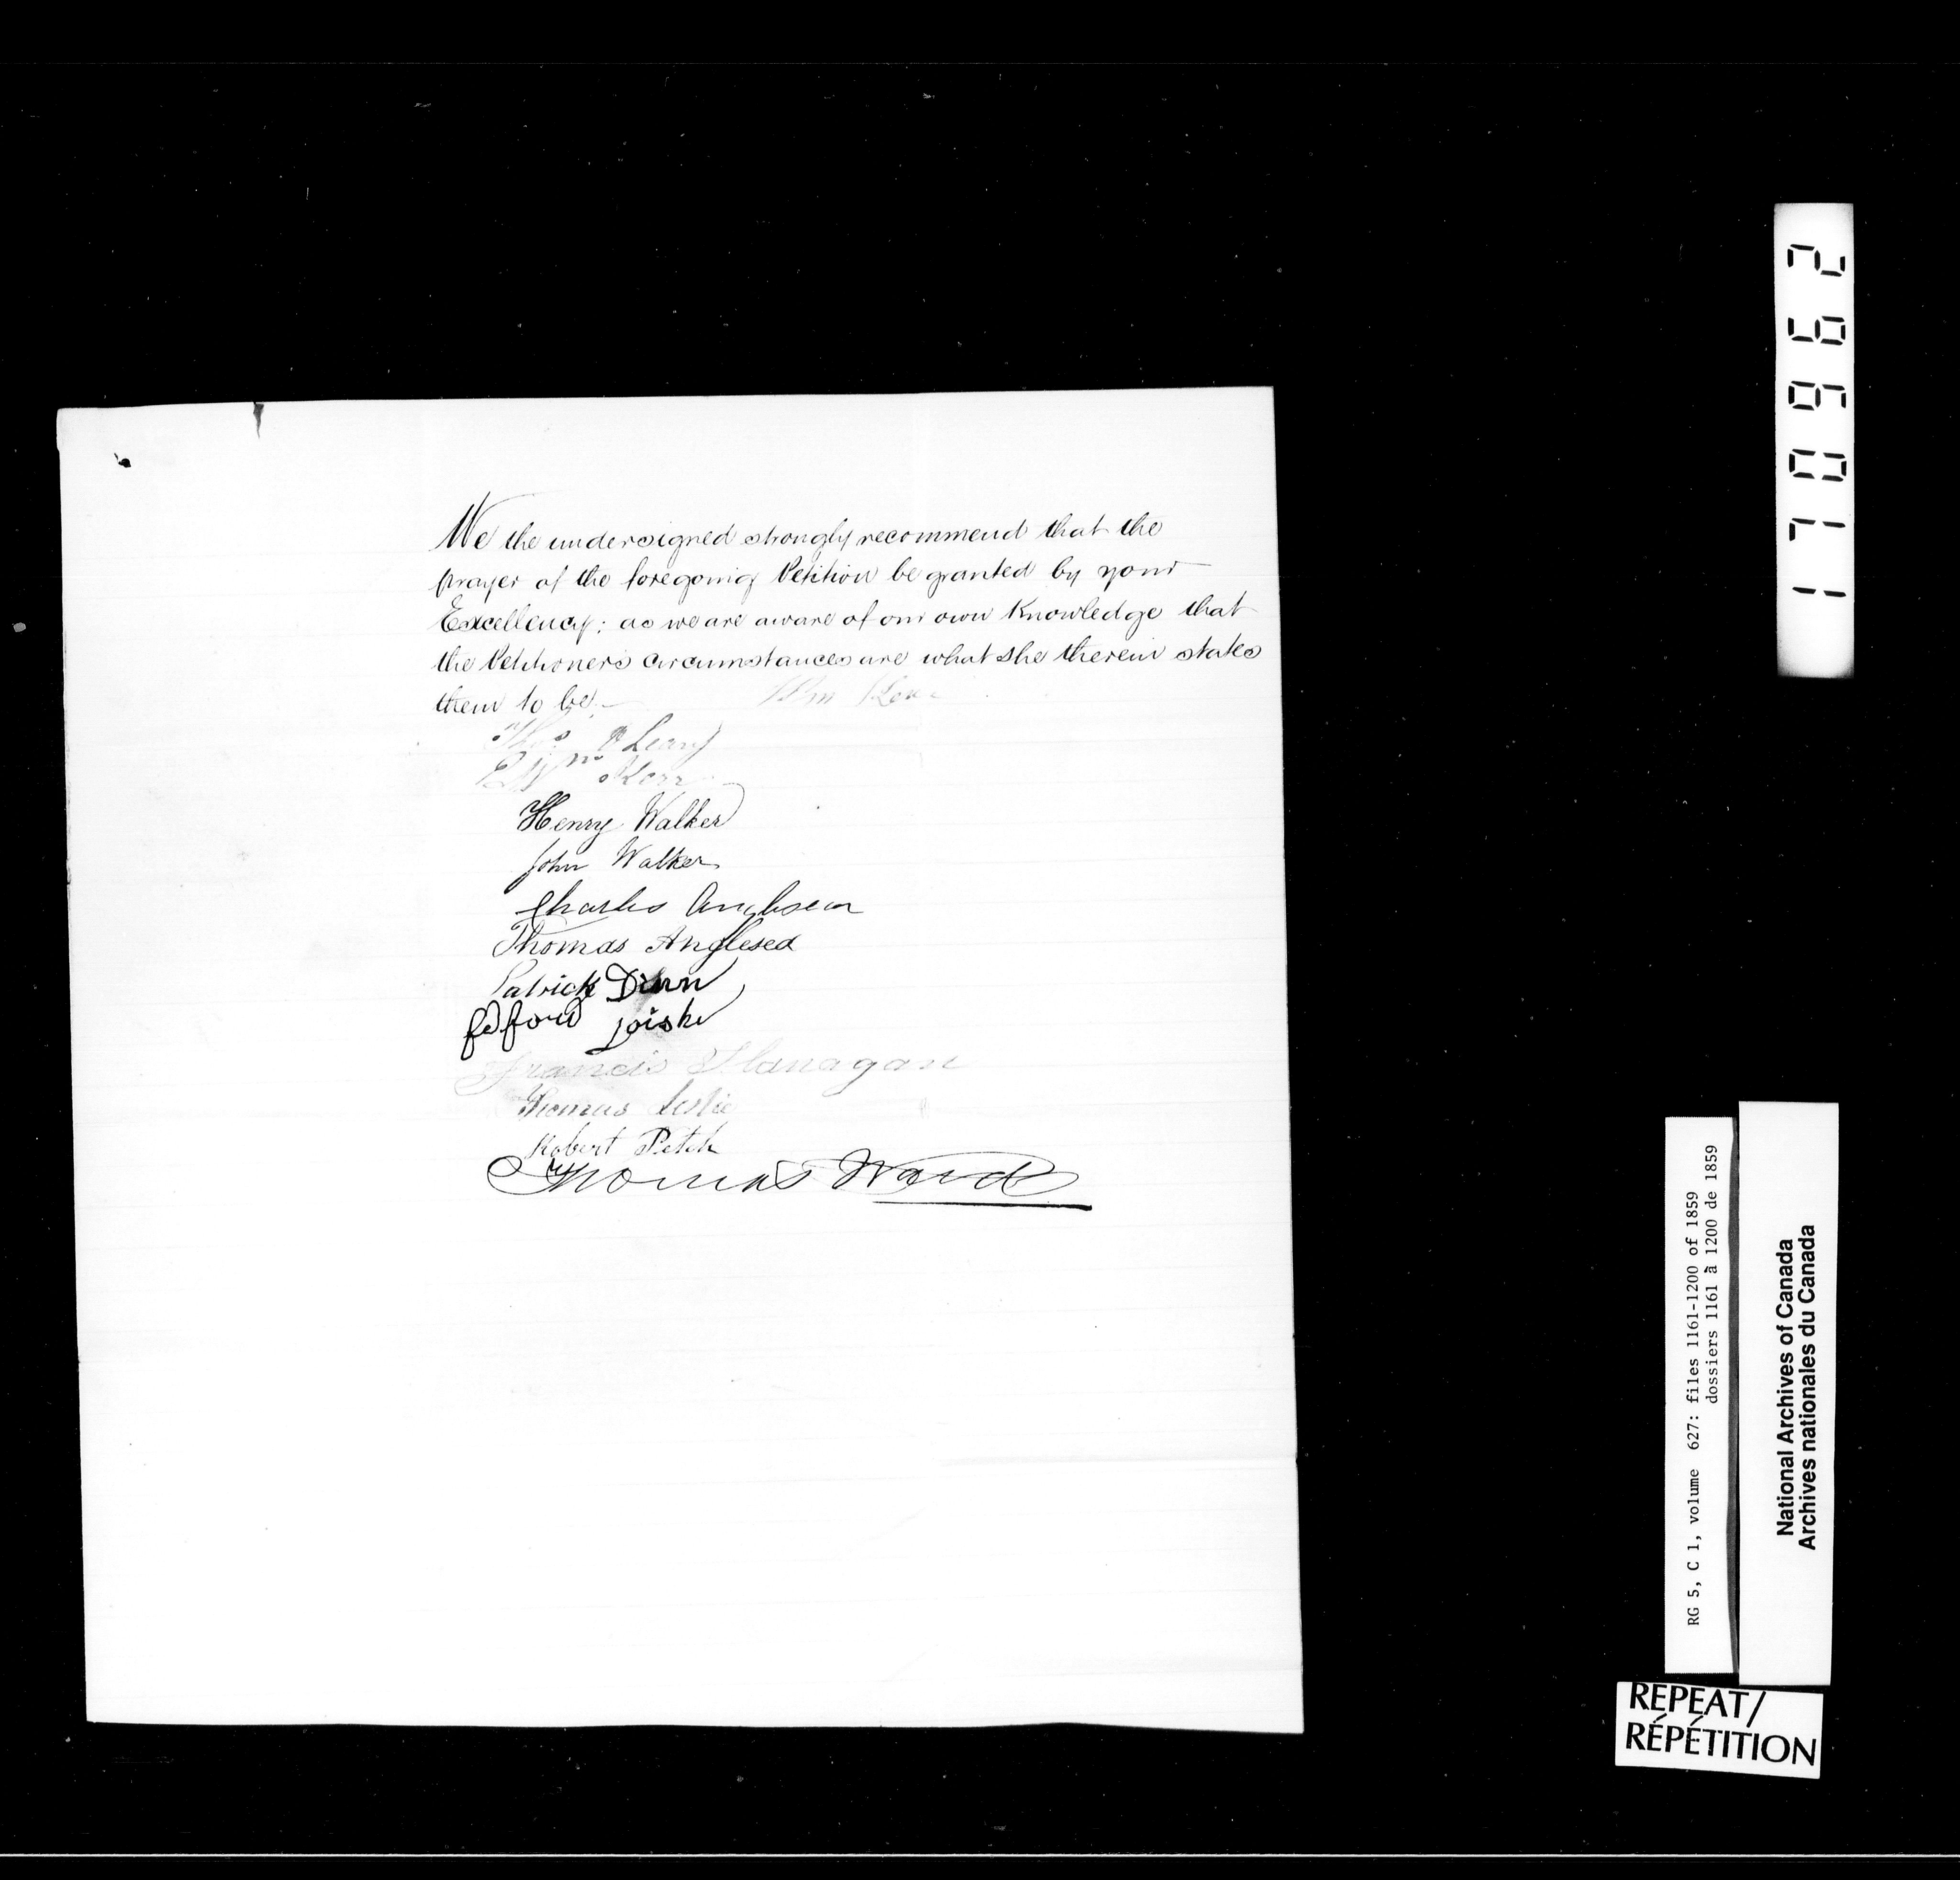 We the undersigned strongly recommend that the
prayer of the foregoing Petition be granted by your
Excellency: as we are aware of our own Knowledge that
the Petitioner's circumstances are what she therein states
them to be.—
Wm
Thos O'Leary
Kerr
Henry Walker
John Walker
Charles
Thomas Anglesea
Patrick Dunn
Francis Flanagan
Thomas Leslie
Robert Petch
Thomas Ward
170962
RG 5, C 1, volume 627: files 1161-1200 of 1859
dossiers 1161 à 1200 de 1859
National Archives of Canada
Archives nationales du Canada
REPEAT/
RÉPÉTITION